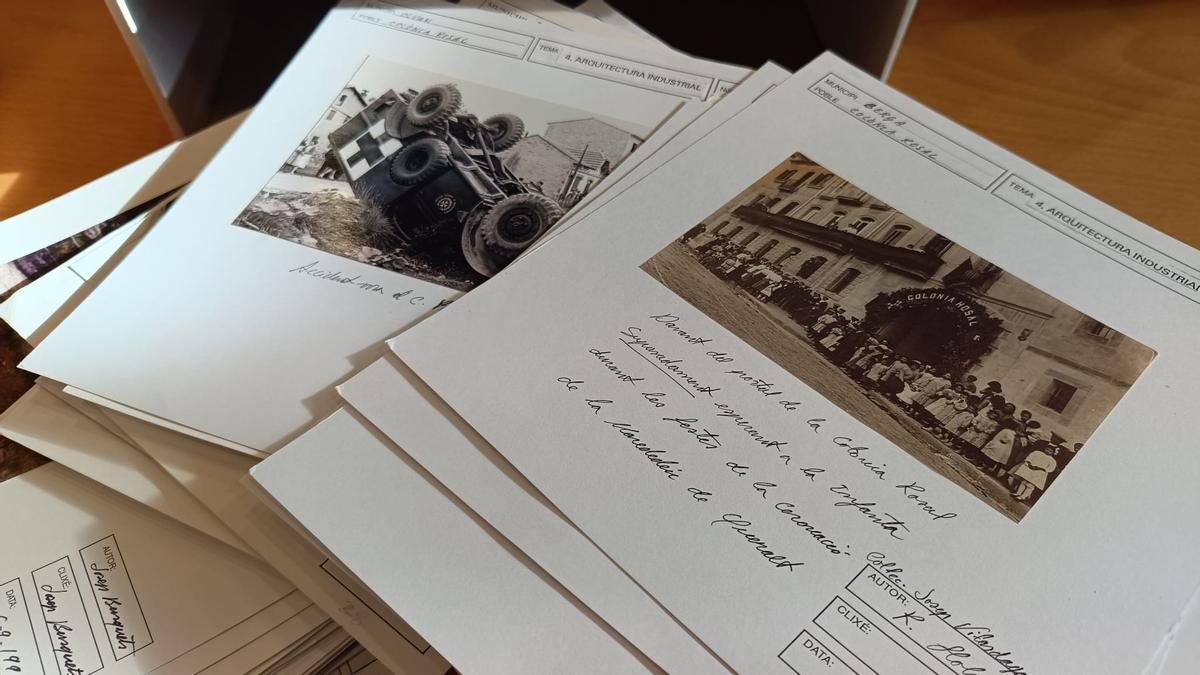 POBLE: COLÒNIA ROSAL
TEMA 4. ARQUITECTURA INDUSTRIAL
Accident al C.
MUNICIPI: BERGA
POBLE: COLÒNIA ROSAL
TEMA 4. ARQUITECTURA INDUSTRIAL
COLONIA ROSAL
Davant del portal de la Colònia Rosal
esperant a la Infanta
durant les festes de la coronació
de la Marededéu de Queralt
Col·lec. Josep
AUTOR: R.
CLIXÉ:
DATA:
AUTOR:
Josep Busquets
CLIXÉ:
Josep Busquets
DATA: